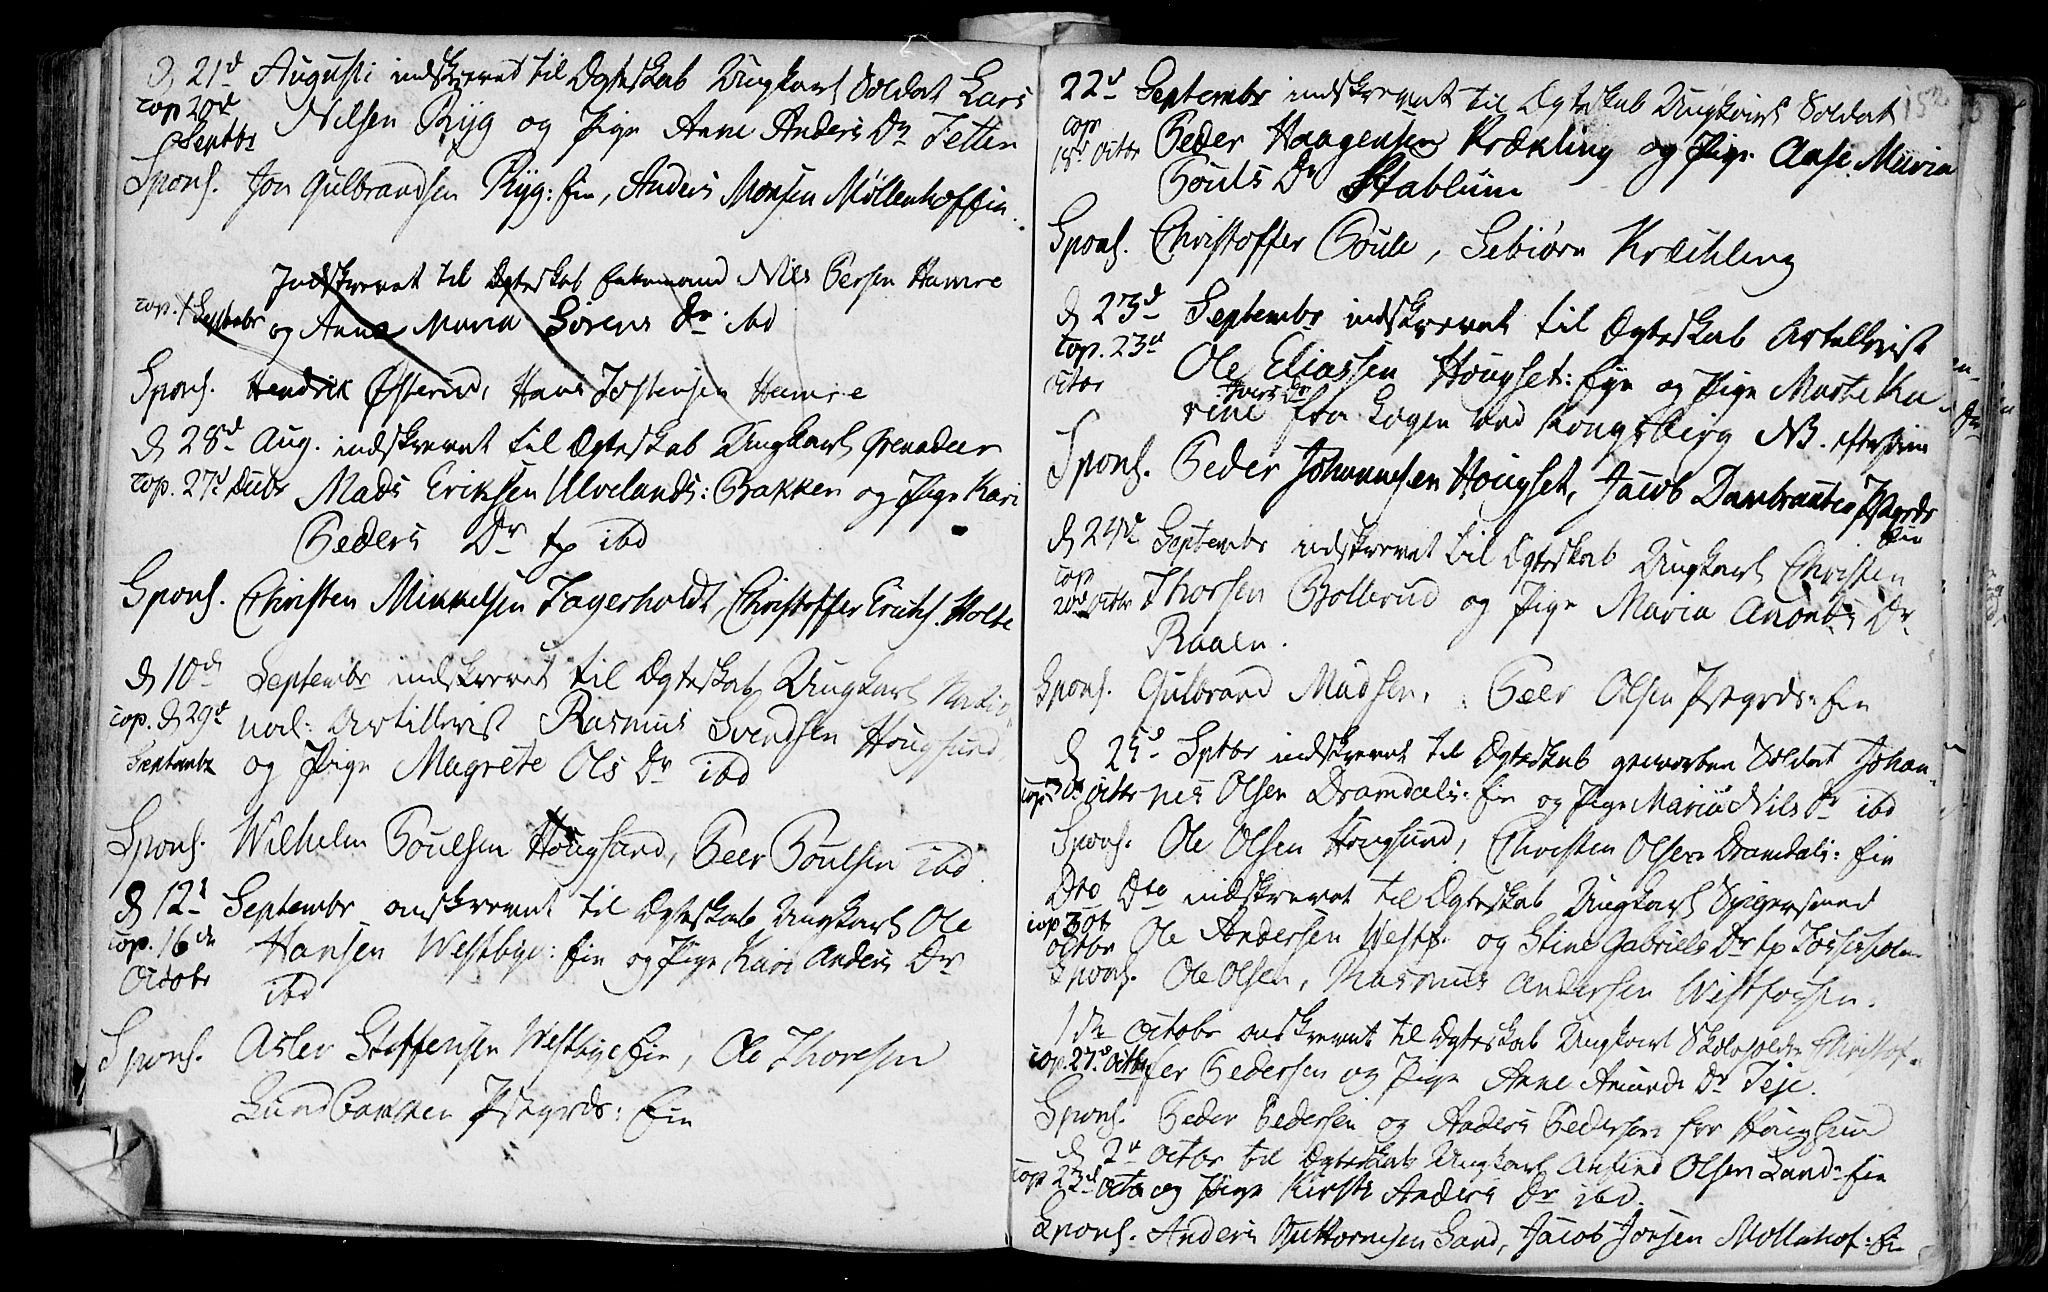 D 21d Augusti indskrevet til Ægteskab Ungkarl Soldat Lars
cop 20d Septbr Nilsen Ryg og Pige Anne Anders Dr Tetten
Spons. Jon Gulbrandsen Ryg: Eie, Anders Monsen Møllenhof Eie.
Indskrevet til Ægteskab Enkemand Nils Persen Hamre
cop. 1 Septebr og Anne Maria Sørens Dr ibd
Spons. Hendrik Østerud, Hans Jostensen Hamre
D 28d Aug. indskrevet til Ægteskab Ungkarl Grenadeer
cop. 27d Mads Eriksen Ulvelands: Bakken og Pige Kari
Peders Dr tp ibd
Spons. Christen Mikkelsen Fagerholdt, Christoffer Erichs. Holte
D 10de Septembr indskrevet til Ægteskab Ungkarl Natio-
cop. D 29d nal: Artillerist Rasmus Svendsen Hougsund
Septembr og Pige Magrete Ols Dr ibd
Spons. Wilhelm Poulsen Hougsund, Peer Poulsen ibd.
D 12d Septembr anskrevet til Ægteskab Ungkarl Ole
cop. 16de Hansen Westbye: Eie og Pige Kari Anders Dr
Octobr ibd
Spons. Aslev Steffensen Westbye Eie, Ole Thoresen
Lundbakken Pstgrds: Eie
152
22d Septembr indskrevet til Ægteskab Ungkarl Soldat
cop 18d Octbr Peder Haagensen Krækling og Pige Anne Maria
Pouls Dr Stablum
Spons. Christoffer Poule, Lebiørn Krækling
D 23d Septembr indskrevet til Ægteskab Artellrist
cop. 23d Ole Eliassen Hougset: Eye og Pige Marte Ka-
octbr rine Ivers Dr fra Logen ved Kongsberg NB.
Spons. Peder Johannesen Hougset, Jacob Pstgrds Eie
D 24de Septembr indskrevet til Ægteskab Ungkarl Christen
cop 20de Octbr Thorsen Bollerud og Pige Maria Dr
Raaen.
Spons. Gulbrand Madsen, Peer Olsen Pstgrds: Eie
D 25d Sptbr indskrevet til Ægteskab gevorben Soldat Johan-
cop. octbr nes Olsen Dramdals: Eie og Pige Maria Nils Dr ibd
Spons. Ole Olsen Hougsund, Christen Olsen Dramdals: Eie
Dto Dto indskrevet til Ægteskab Ungkarl Spigersmed
cop 30t octbr Ole Andersen Westf. og Stine Gabriels Dr tp
Spons. Ole Olsen, Rasmus Andersen Westfossen.
1de octobr anskrevet til Ægteskab Ungkarl Skoleholder Christof-
cop. 27d octbr fer Pedersen og Pige Anne Amunds Dr Teje.
Spons. Peder Pedersen og Anders Pedersen Hougsund
D 2d octbr til Ægteskab Ungkarl Anfind Olsen Sand: Eie
cop 23d octbr og Pige Kirsti Anders Dr ibd.
Spons. Anders Guttormsen Sand, Jacob Jonsen Mollnhof: Eie